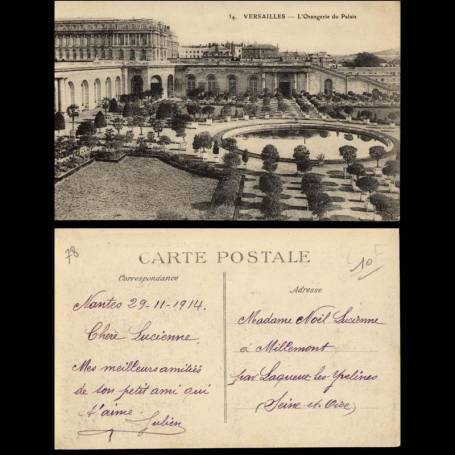 34. VERSAILLES — L'Orangerie du Palais
78
10F
CARTE POSTALE
Correspondance
Adresse
Nantes 29-11-1914.
Chère Lucienne,
Mes meilleurs amitiés
de ton petit ami qui
t'aime
Julien
Madame Noël Lucienne
à Millemont
par Laqueue les Yvelines
(Seine-et-Oise)